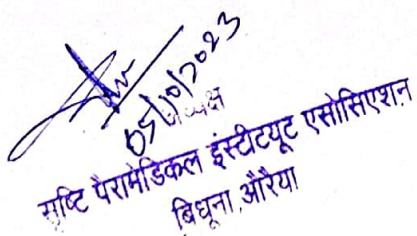 05/10/2023
अध्यक्ष
सृष्टि पैरामेडिकल इंस्टीटयूट एसोसिएशन
बिधूना,औरैया